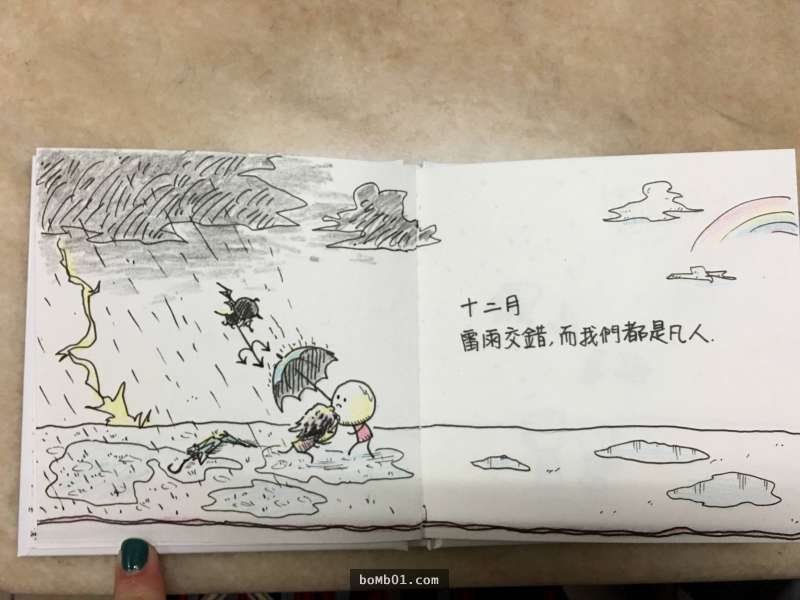 十二月
雷雨交錯,而我們都是凡人.
boMb01.com